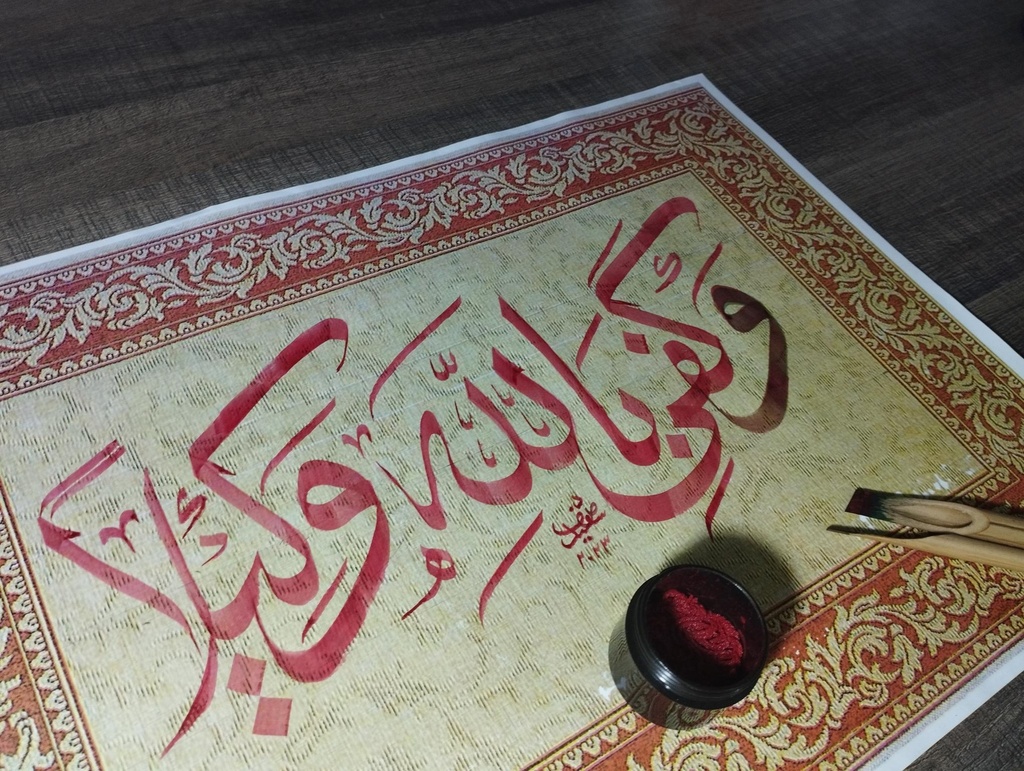 وكفى بالله وكيلا
٢٠٢٣